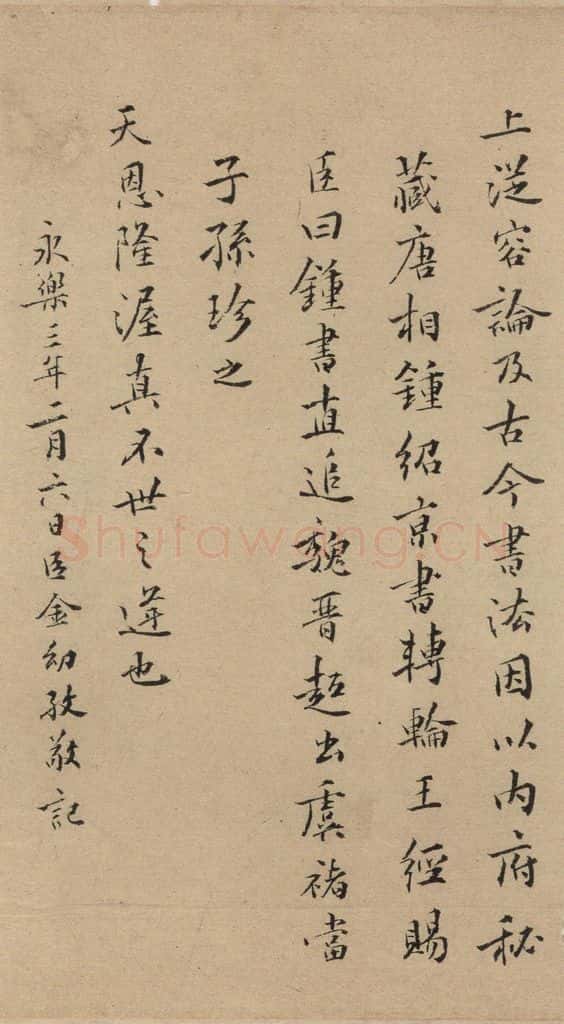 上從容論及古今書法因以内府秘
藏唐相鍾紹京書轉輪王經賜
臣曰鍾書直追魏晋超出虞褚當
子孫珍之
天恩隆渥真不世之遘也
永樂三年二月六日臣金幼孜敬記
Shufawang.CN